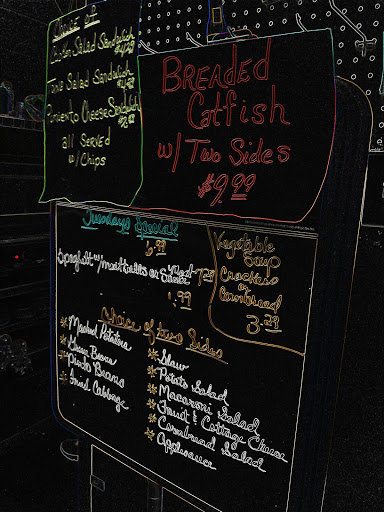 Choice of
Chicken Salad Sandwich
Tuna Salad Sandwich
Pimiento Cheese Sandwich
all Served
w/ Chips
BREADED
Catfish
w/ Two Sides
$9.99
Tuesdays Special
6.99
Spaghetti w/ meatballs or Meat Sauce 7.29
1.99
Vegetable
Soup
Crackers
or
Cornbread
3.29
Choice of two Sides
* Mashed Potatoes
* Green Beans
* Pinto Beans
* Fried Cabbage
* Slaw
* Potato Salad
* Macaroni Salad
* Fruit & Cottage Cheese
* Cornbread Salad
* Applesauce